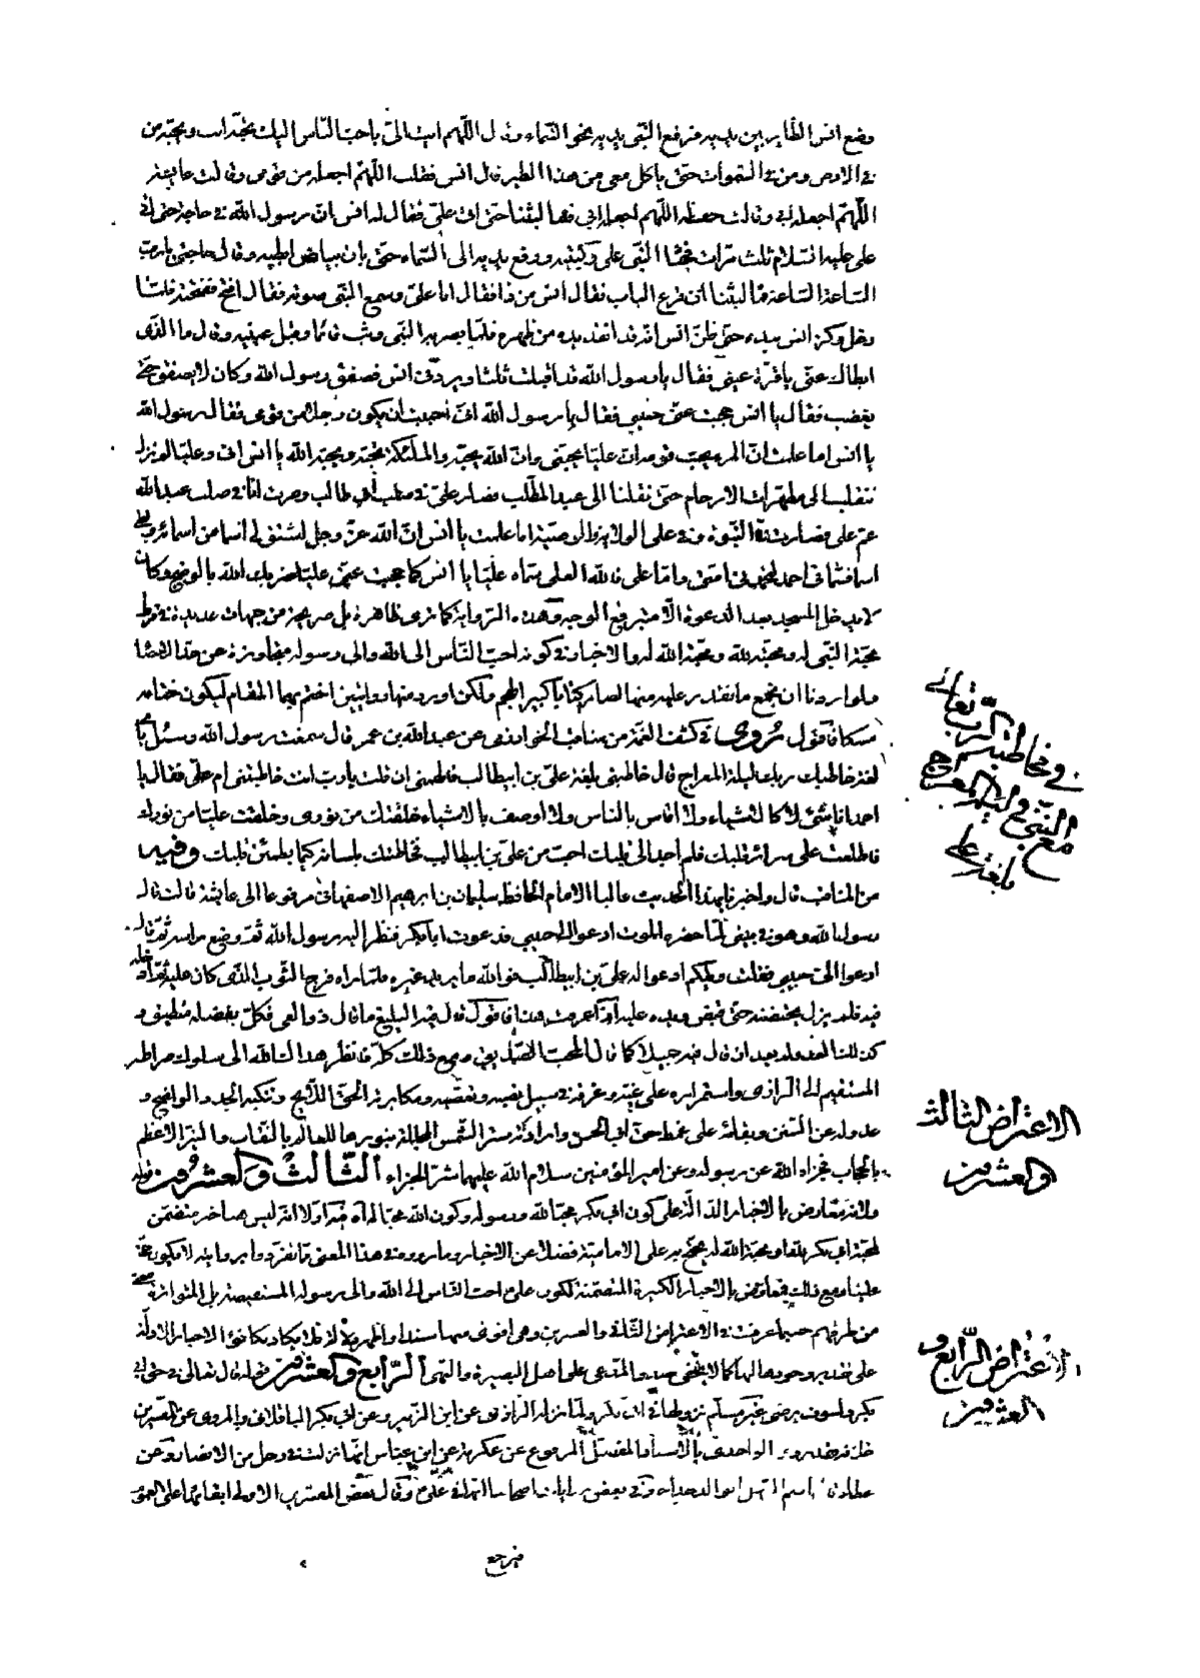 وضع انس الطاير بين يديه فرفع النبي يديه نحو السماء وقال اللهم ايت الي باحب الناس اليك تحبه انت ويحبه من
في الارض ومن في السموات حتى ياكل معي من هذا الطير قال انس فقلت اللهم اجعله من قومي وقالت عايشة
اللهم اجعله ابي وقالت حفصة اللهم اجعله ابي فما لبثنا حتى اتى علي فقال له انس ان رسول الله في حاجة حتى اتى
علي عليه السلام ثلث مرات فجثا النبي على ركبتيه ورفع يديه الى السماء حتى بان بياض ابطيه وقال حاجتي يا رب
الساعة الساعة فما لبثنا ان قرع الباب فقال انس من ذا فقال انا علي وسمع النبي صوته فقال افتح ففتحته فلما
دخل وكز انس بيده حتى ظن انس انه قد انفذ يده من ظهره فلما بصر به النبي وثب قائما وقبل عينيه وقال ما الذي
ابطاك عني يا قرة عيني فقال يا رسول الله قد اقبلت ثلثا ويردني انس فصفق رسول الله وكان لا يصفق حتى
يغضب فقال يا انس حجبت عني حبيبي فقال يا رسول الله اني احببت ان يكون رجلا من قومي فقال رسول الله
يا انس اما علمت ان المرء يحب قومه ان عليا يحبني وان الله يحبه والملائكة تحبه ويحبه الله يا انس اني وعليا لم نزل
نتقلب الى مطهرات الارحام حتى نقلنا الى عبد المطلب فصار علي في صلب ابي طالب وصرت انا في صلب عبد الله
عم علي فصارت في النبوة وفي علي الولاية والوصية اما علمت يا انس ان الله عز وجل اشتق لي اسما من اسمائه
اسما فسماني احمد امتي واما علي فالله العلي سماه عليا يا انس كما حجبت عني عليا ضربك الله بالوضح وكان
لا يدخل المسجد بعد الدعوة الا متبرقع الوجه وهذه الرواية كما ترى ظاهرة بل صريحة من جهات عديدة في فرط
محبة النبي له ومحبته لله ومحبة الله له والاخبار في كونه احب الناس الى الله والى رسوله متجاوزة عن حد الاحصا
ولو اردنا ان نجمع ما نقدر عليه منها لصار كتابا كبير الحجم ولكن اورد منها روايتين اختم بهما المقام ليكون ختامه
مسكا فاقول روى في كشف الغمة من مناقب الخوارزمي عن عبد الله بن عمر قال سمعت رسول الله وسئل باي
لغة خاطبك ربك ليلة المعراج قال خاطبني بلغة علي بن ابيطالب فالهمني ان قلت يا رب انت خاطبتني ام علي فقال يا
احمد انا شيء لا كالاشياء ولا اقاس بالناس ولا اوصف بالاشياء خلقتك من نوري وخلقت عليا من نورك
فاطلعت على سرائر قلبك فلم اجد الى قلبك احب من علي بن ابيطالب فخاطبتك بلسانه كيما يطمئن قلبك وفيه
من المناقب قال واخبرنا بهذا الحديث عاليا الامام الحافظ سليمان بن ابراهيم الاصفهاني مرفوعا الى عايشة قالت قال
رسول الله وهو في بيتي لما حضره الموت ادعوا الي حبيبي فدعوت ابا بكر فنظر اليه رسول الله ثم وضع راسه ثم قال
ادعوا الي حبيبي فقلت ويلكم ادعوا له علي بن ابيطالب فوالله ما يريد غيره فلما راه فرج الثوب الذي كان عليه ثم ادخله
فيه فلم يزل يحتضنه حتى قبض ويده عليه
المستقيم الى الرازي واستمراره على غيه
عدوله عن السنن وبقائه على
بالحجاب فجزاه الله عن رسوله وعن امير المؤمنين سلام الله عليهما شر الجزاء الثالث والعشرون قوله
ولانه معارض بالاخبار الدالة على كون ابي بكر محبا لله ورسوله وكون الله محبا له
لمحبة ابي بكر لله او محبة الله له حجة على الامامية فضلا عن الاخبار وما روي في هذا المعنى تفردوا بروايته لا يكون حجة
علينا ومع ذلك فمعارض بالاخبار الكثيرة المتضمنة لكون علي احب الناس الى الله والى رسوله المستفيضة بل المتواترة
من طرقهم حسبما عرفت في الاعتراض الثاني والعشرين وهي اقوى منها سندا واظهر دلالة فلا يكاد يكافؤ الاخبار الاولة
على تقدير وجودها لها كما لا يخفى على اهل البصيرة والنهى الرابع والعشرون قوله قال تعالى في حق ابي
بكر ولسوف يرضى غير مسلم نزولها في ابي بكر وانما نزله الرازي عن ابن الزبير وعن ابي بكر الباقلاني والمروي عن المفسرين
خلافه فقد روى الواحدي بالاسناد المتصل المرفوع عن عكرمة عن ابن عباس انها نزلت في رجل من الانصار وعن
في مخاطبة الرب تعالى
مع النبي في ليلة المعراج
بلغة علي
الاعتراض الثالث
والعشرون
الاعتراض الرابع و
العشرون